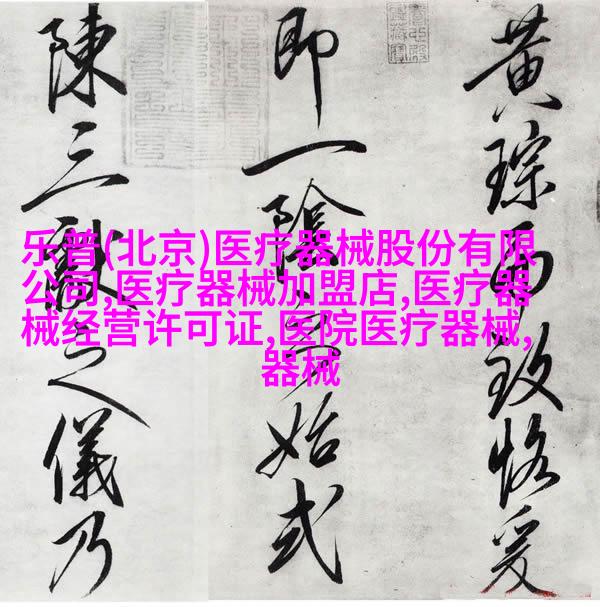 乐普(北京)医疗器械股份有限
公司,医疗器械加盟店,医疗器
械经营许可证,医院医疗器械,
器械
黄琮而致恪爰
即一陰之始式
陳三獻之儀乃